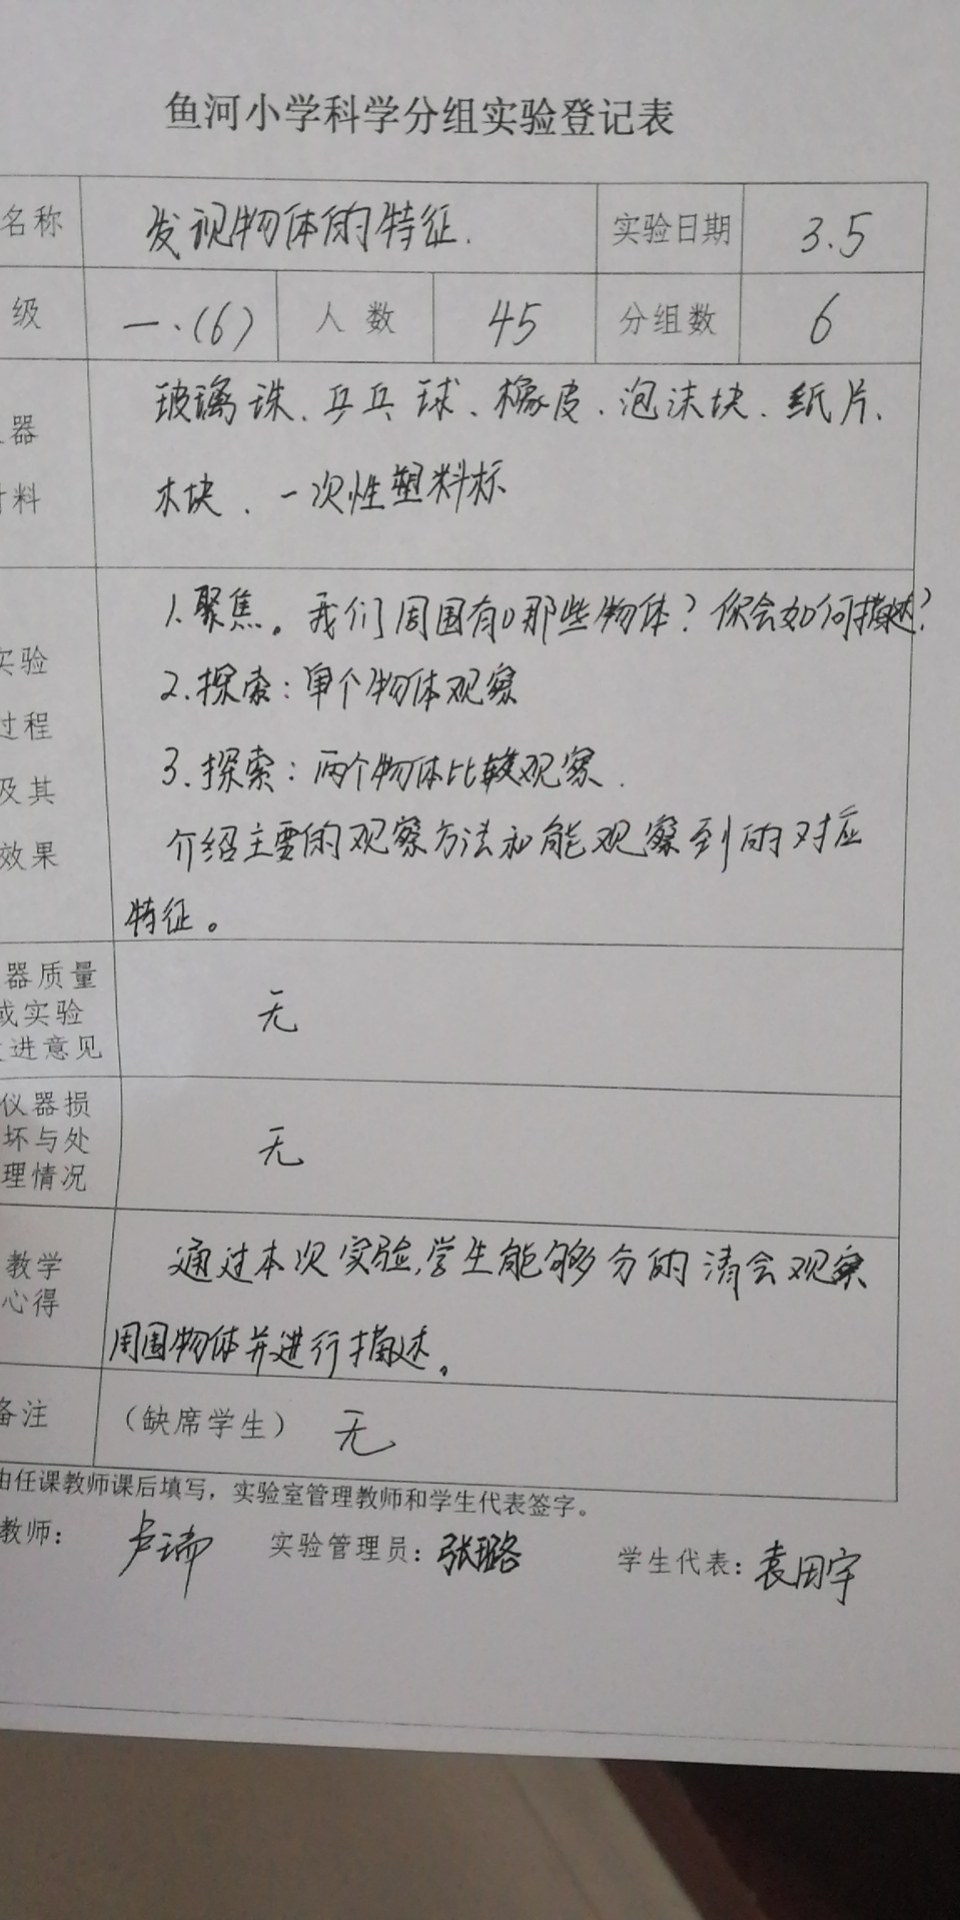 鱼河小学科学分组实验登记表
名称 发现物体的特征. 实验日期 3.5
级 一.(6) 人数 45 分组数 6
器
料
玻璃珠、乒乓球、橡皮、泡沫块、纸片、
木块、一次性塑料标
实验
过程
及其
效果
1.聚焦。我们周围有那些物体?你会如何描述?
2.探索:单个物体观察
3.探索:两个物体比较观察.
介绍主要的观察方法和能观察到的对应
特征。
器质量
或实验
进意见
无
仪器损
坏与处
理情况
无
教学
心得
通过本次实验,学生能够分的清会观察
周围物体并进行描述。
备注 (缺席学生) 无
由任课教师课后填写,实验室管理教师和学生代表签字。
教师: 卢瑞 实验管理员: 张璐 学生代表: 袁田宇